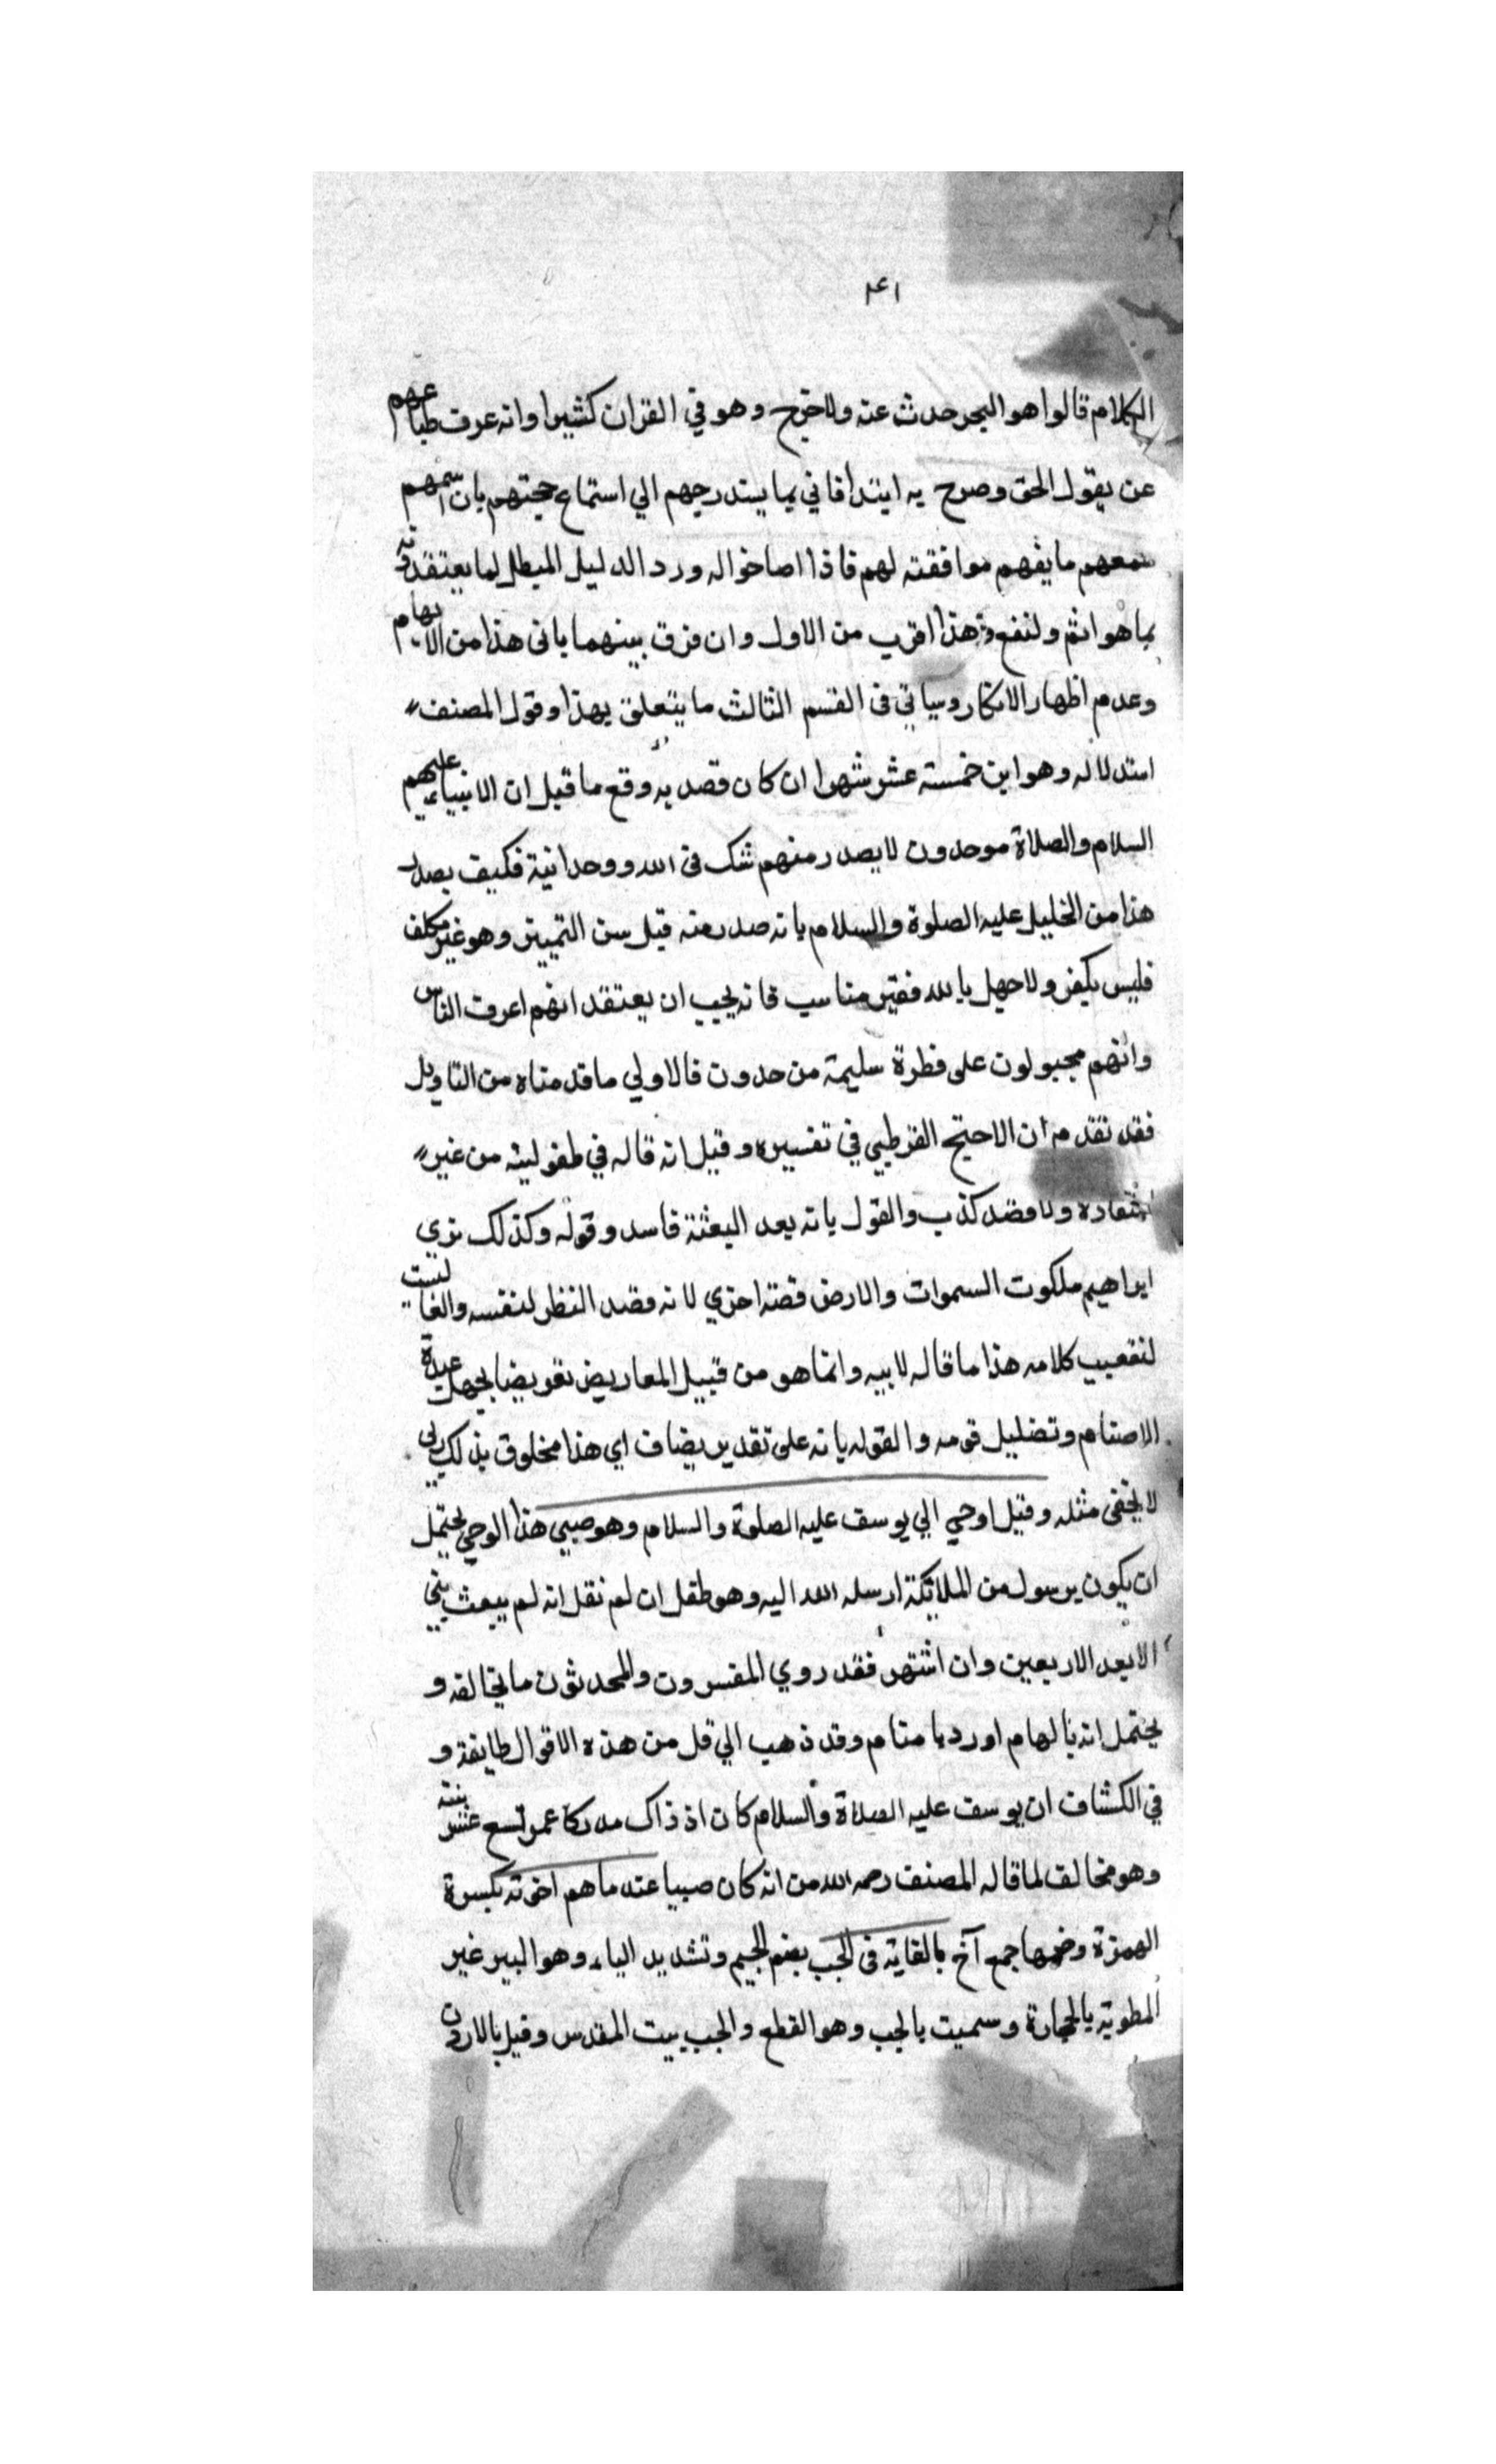 ٢٤١
الكلام قالوا هو البحر حدث عنه ولا حرج وهو في القران كثيرا وانه عرف طباعهم
عن يقول الحق وصرح به ابتدأ فاتي بما يستدرجهم الي استماع حجتهم بان اسمعهم
سمعهم ما يفهم موافقته لهم فاذا اصاخوا له ورد الدليل المبطل لما يعتقدونه
بما هو اتم ولنفع وهذا اقرب من الاول وان فرق بينهما باني هذا من الابهام
وعدم اظهار الانكار وسياتي في القسم الثالث ما يتعلق بهذا وقول المصنف
استدلاله وهو ابن خمسة عشر شهرا ان كان قصد به وقع ما قيل ان الانبياء عليهم
السلام والصلاة موحدون لا يصدر منهم شك في الله ووحدانية فكيف يصدر
هذا من الخليل عليه الصلوة والسلام بانه صدر منه قبل سن التمييز وهو غير مكلف
فليس بكفر ولا جهل بالله فغير مناسب فانه يجب ان يعتقد انهم اعرف الناس
وانهم مجبولون على فطرة سليمة من حدون فالاولي ما قدمناه من التاويل
فقد تقدم ان الاحتج القرطبي في تفسيره وقيل انه قاله في طفوليته من غير
ولا قصد كذب والقول بانه بعد البعثة فاسد وقوله وكذلك نري
ابراهيم ملكوت السموات والارض قصة اخري لانه قصد النظر لنفسه والفا ليست
لتعقيب كلامه هذا ما قاله لابيه وانما هو من قبيل المعاريض تعويضا لجهل عبدة
الاصنام وتضليل قومه والقوله بانه على تقدير يضاف اي هذا مخلوق بذلك ربي
لا يخفى مثله وقيل اوحي الي يوسف عليه الصلوة والسلام وهو صبي هذا الوحي يحتمل
ان يكون برسول من الملائكة ارسله الله اليه وهو طفل ان لم نقل انه لم يبعث نبي
الا بعد الاربعين وان اشتهر فقد روي المفسرون والمحدثون ما يخالفه و
يحتمل انه بالهام او رديا منام وقد ذهب الي قل من هذه الاقوال طايفة و
في الكشاف ان يوسف عليه الصلاة والسلام كان اذ ذاك مدركا عمره تسع عشر سنة
وهو مخالف لما قاله المصنف رحمه الله من انه كان صبيا عندما هم اخوته بكسرة
الهمزة وضمها جمع آخ بالقايه في الجب بضم الجيم وتشديد الياء وهو البير غير
المطوية بالحجارة وسميت بالجب وهو القطع والجب ببيت المقدس وقيل بالاردن